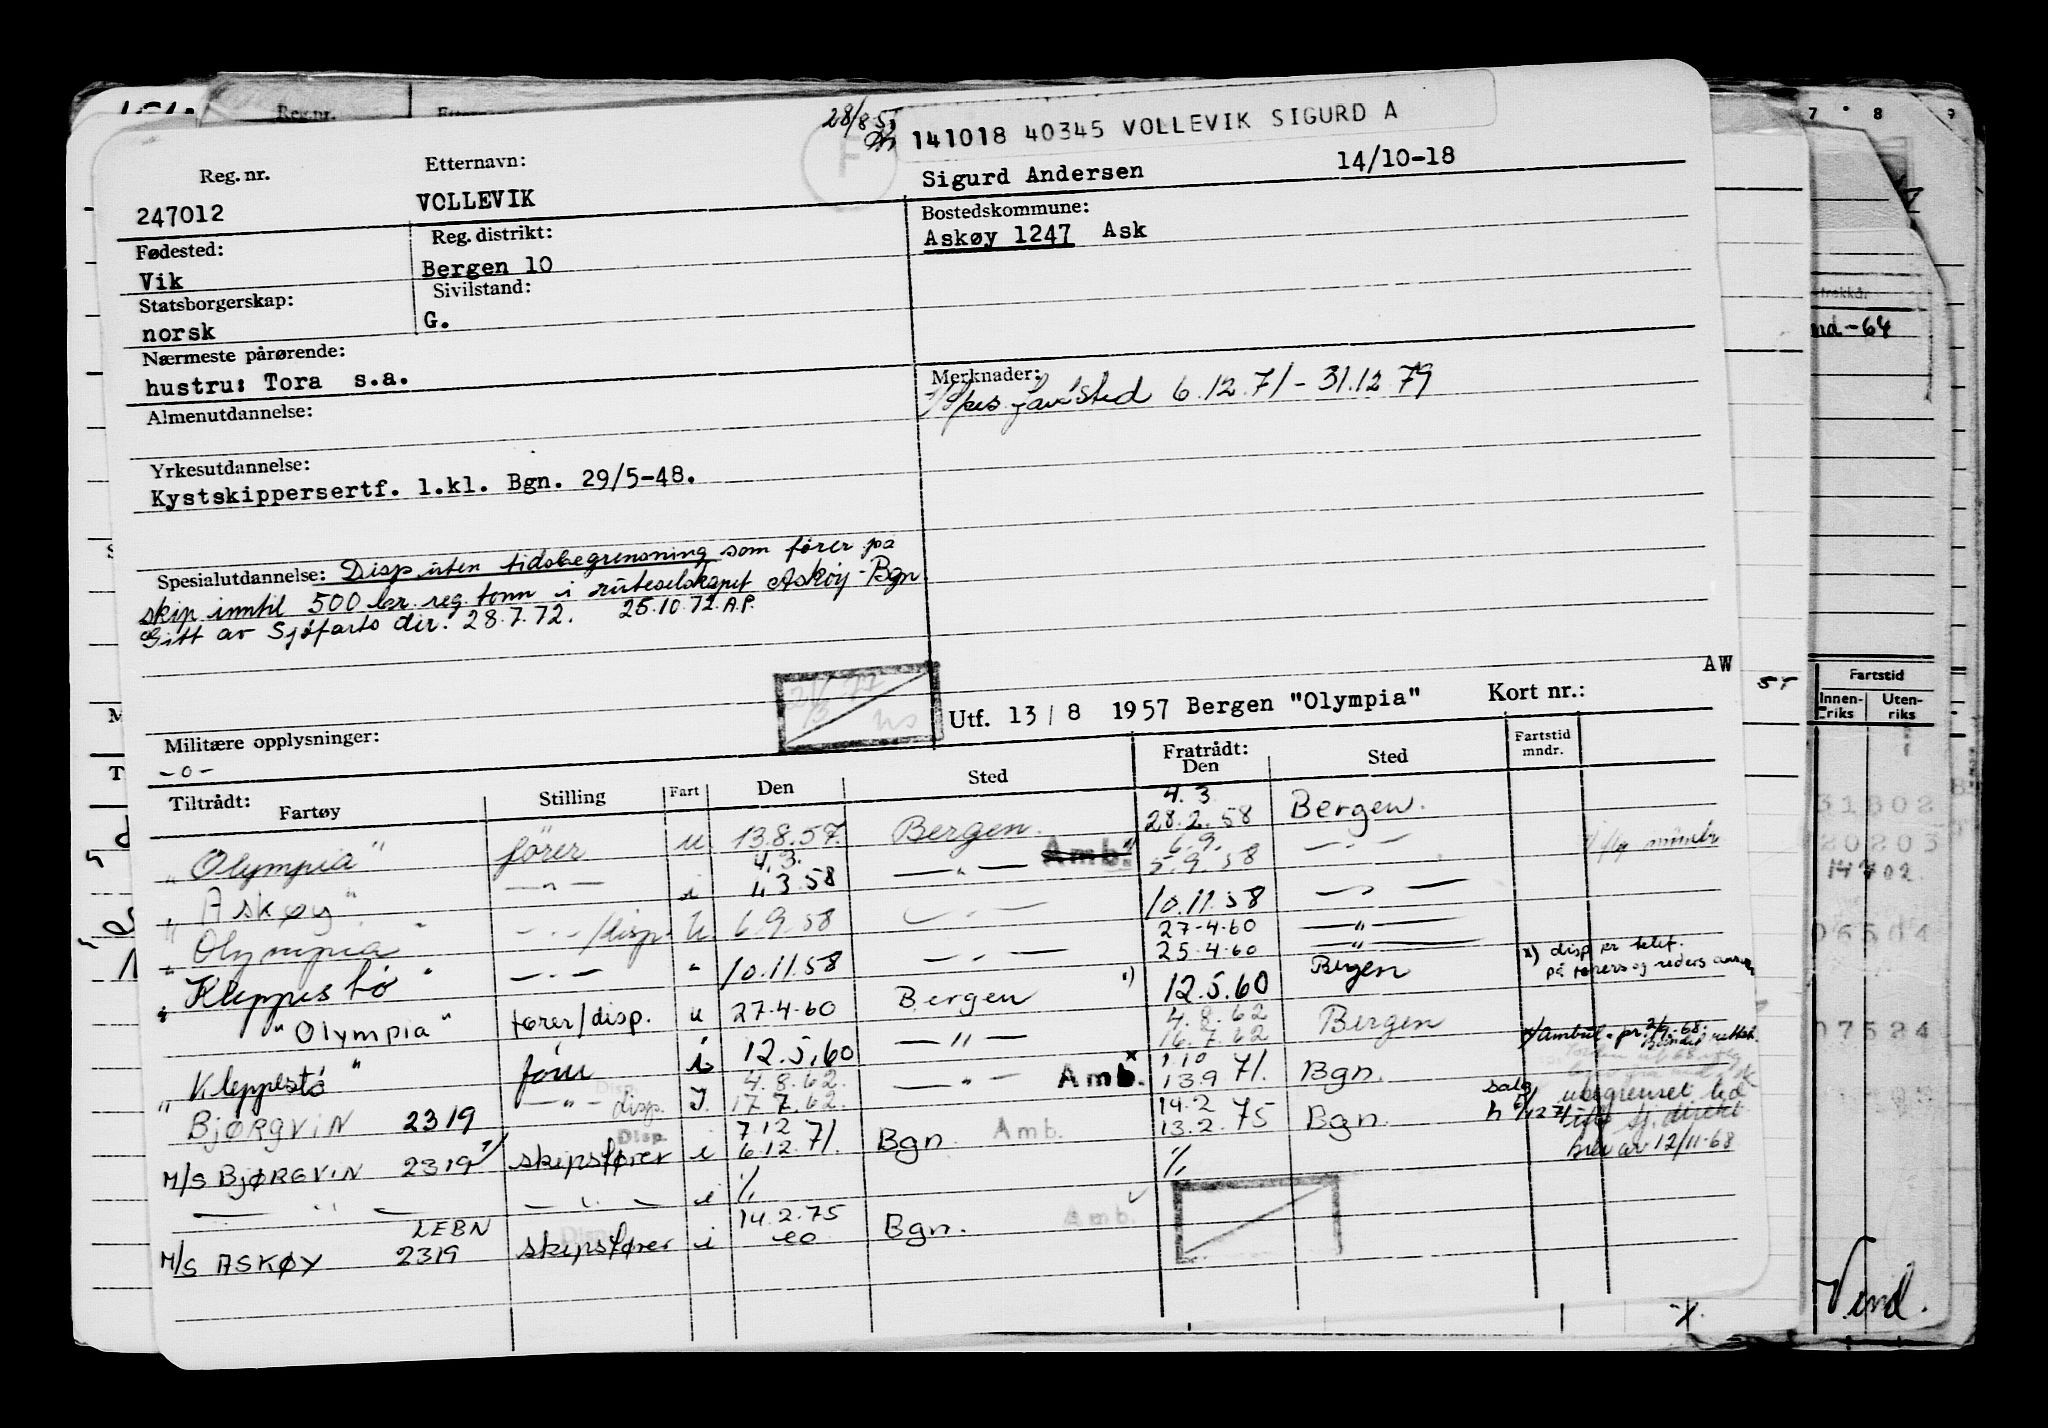 28/8-57
141018 40345 VOLLEVIK SIGURD A
Reg. nr.
Etternavn:
247012
VOLLEVIK
Sigurd Andersen
14/10-18
Fødested:
Reg. distrikt:
Bostedskommune:
Vik
Bergen 10
Askøy 1247 Ask
Statsborgerskap:
Sivilstand:
norsk
G.
Nærmeste pårørende:
hustru: Tora s.a.
Merknader:
6.12.71 - 31.12.79
Almenutdannelse:
Yrkesutdannelse:
Kystskippersertf. 1.kl. Bgn. 29/5-48.
Spesialutdannelse: Disp. uten tidsbegrensning som fører på
skip inntil 500 br. reg. tonn i ruteselskapet Askøy-Bgn.
Gitt av Sjøfarts dir. 28.7.72. 25.10.72. A.P.
AW
Utf. 13/8 1957 Bergen "Olympia" Kort nr.:
Militære opplysninger:
- o -
Tiltrådt:
Fartøy
Stilling
Fart
Den
Sted
Fratrådt:
Den
Sted
Fartstid
mndr.
"Olympia" fører u 13.8.57. Bergen. 4.3. 28.2.58 Bergen.
"Askøy" — " — i 4.3. 1.3.58 — " — Amb. 6.9. 5.9.58 — " —
"Olympia" — " — /disp. u. 6.9.58 — " — 10.11.58 — " —
"Kleppestø" — " — " 10.11.58 — " — 27.4.60 25.4.60 — " —
x) disp er telef.
på førers og reders
"Olympia" fører/disp. u 27.4.60 Bergen 1) 12.5.60 Bergen
"Kleppestø" i 12.5.60 — " — 4.8.62 16.7.62 Bergen
BJØRGVIN 2319 — " — disp. I 4.8.62. 17.7.62. — " — Amb. x 1.10 13.9 71. Bgn.
M/S BJØRGVIN 2319 skipsfører Disp. i 7.12 6.12.71. Bgn. Amb. 14.2 13.2. 75 Bgn.
ubegrenset tid
brev av 12/11-68
— " — — " — i % %
M/S ASKØY LEBN 2319 skipsfører i 14.2.75 Bgn. Amb.
7 8 9
Fartstid
Innenriks
Utenriks
31802
20203
14702
06504
07524
Vend.